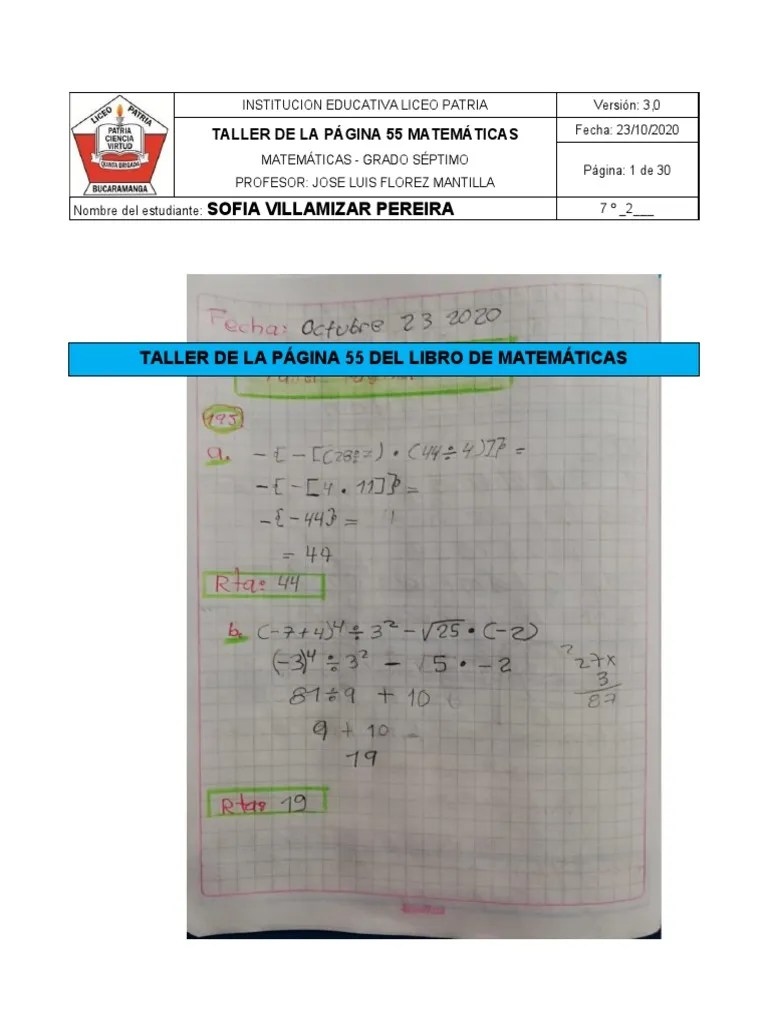 LICEO PATRIA
PATRIA
CIENCIA
VIRTUD
QUINTA BRIGADA
BUCARAMANGA
INSTITUCION EDUCATIVA LICEO PATRIA
TALLER DE LA PÁGINA 55 MATEMÁTICAS
MATEMÁTICAS - GRADO SÉPTIMO
PROFESOR: JOSE LUIS FLOREZ MANTILLA
Versión: 3,0
Fecha: 23/10/2020
Página: 1 de 30
Nombre del estudiante: SOFIA VILLAMIZAR PEREIRA
7 º _2___
Fecha: Octubre 23 2020
TALLER DE LA PÁGINA 55 DEL LIBRO DE MATEMÁTICAS
195
a. -{-[(28÷7) · (44÷4)]}=
-{-[4 · 11]}=
-{-44}=
= 44
Rta: 44
b. (-7+4)⁴ ÷ 3² - √25 · (-2)
(-3)⁴ ÷ 3² - √5 · -2
81÷9 + 10
9 + 10
19
2
27x
3
87
Rta: 19